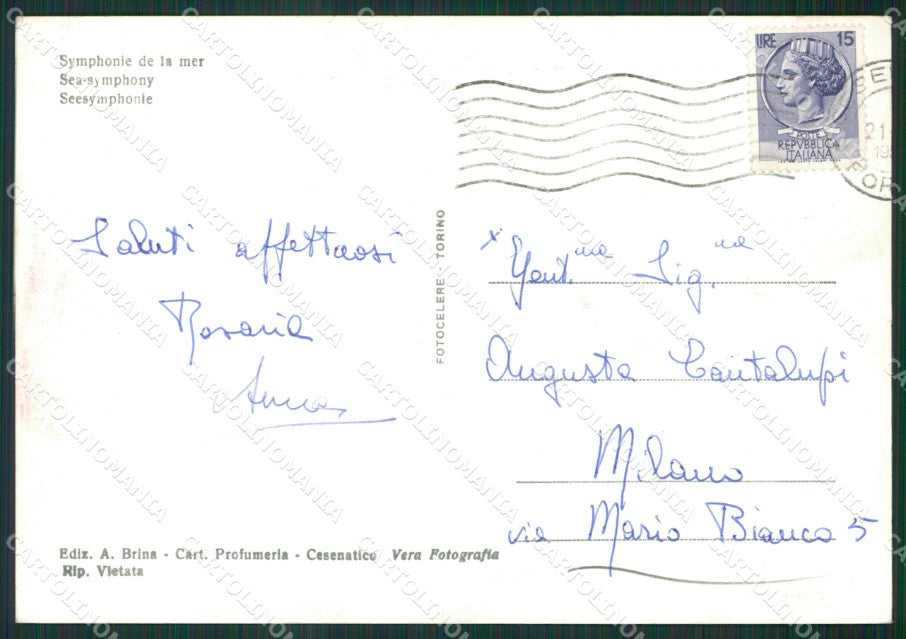 Symphonie de la mer
Sea-symphony
Seesymphonie
LIRE 15
POSTE
REPVBBLICA
ITALIANA
21
Saluti affettuosi
Rosaria
Anna
FOTOCELERE TORINO
Gent.ma Sig.na
Augusta Cantalupi
Milano
via Mario Bianco 5
Ediz. A. Brina - Cart. Profumeria - Cesenatico Vera Fotografia
Rip. Vietata
CARTOLINOMANIA